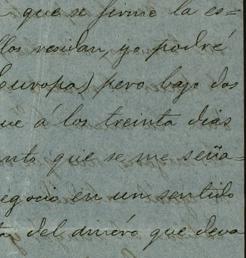 que se firme la es=
llos residan, yo podré
Europa) pero bajo dos
que á los treinta dias
nto que se me seña=
egocio en un sentido
del dinero que deva